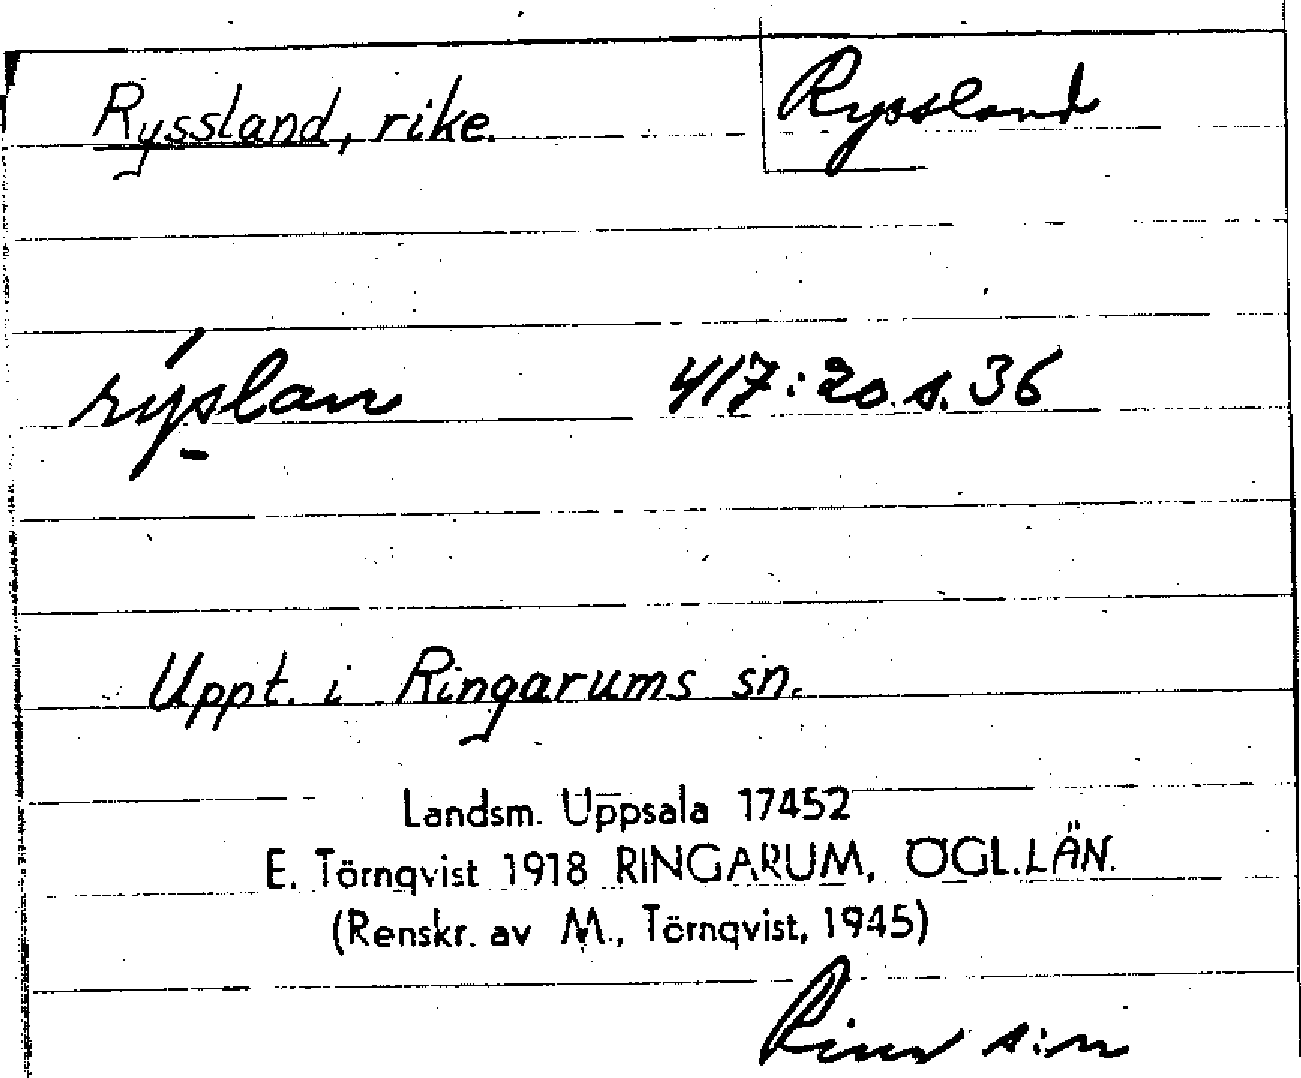 Ryssland, rike.
Ryssland
rýslan 417:20 s. 36
Uppt. i Ringarums sn.
Landsm. Uppsala 17452
E. Törnqvist 1918 RINGARUM, ÖGL.LÄN.
(Renskr. av M., Törnqvist, 1945)
s:n